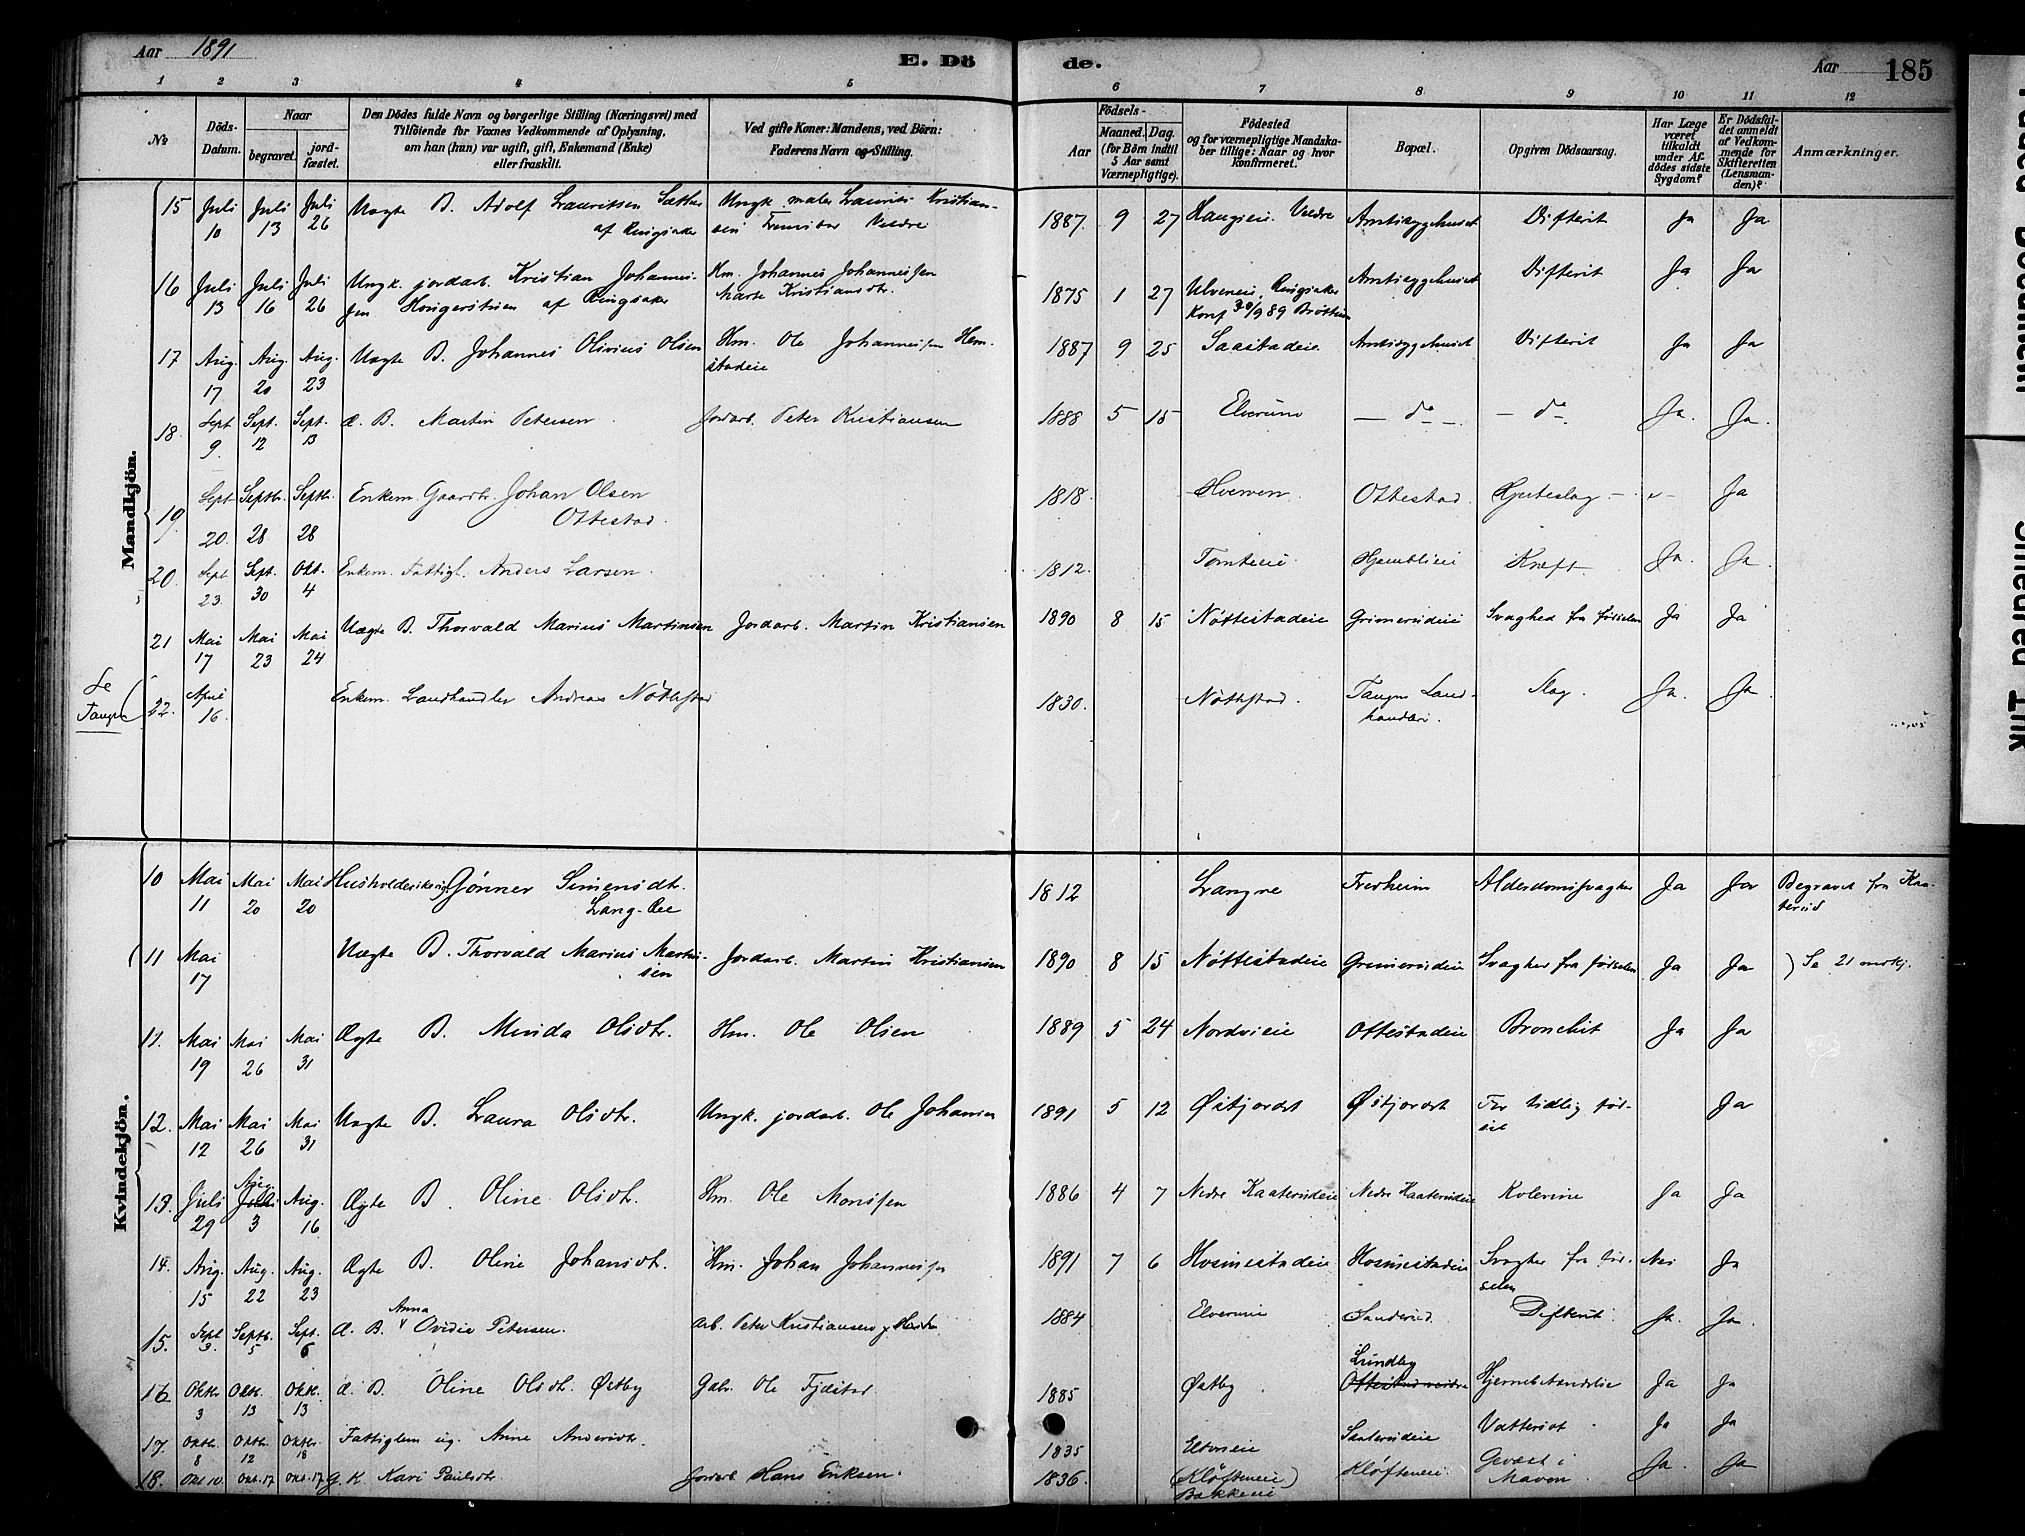 Aar 1891
E. Dö de.
Aar 185
1 2 3 4 5 6 7 8 9 10 11 12
No
Döds-Datum.
Naar
begravet.
jord-fæstet.
Den Dödes fulde Navn og borgerlige Stilling (Næringsvei) med
Tilföiende for Voxnes Vedkommende af Oplysning,
om han (hun) var ugift, gift, Enkemand (Enke)
eller fraskilt.
Ved gifte Koner: Mandens, ved Börn:
Faderens Navn og Stilling.
Födsels-
Aar
Maaned. Dag.
(for Börn indtil
5 Aar samt
Værnepligtige).
Födested
og for værnepligtige Mandska-
ber tillige: Naar og hvor
konfirmeret.
Bopæl.
Opgiven Dödsaarsag.
Har Læge
været
tilkaldt
under Af-
dödes sidste
Sygdom?
Er Dödsfal-
det anmeldt
af Vedkom-
mende for
Skifteretten
(Lensman-
den)?
Anmærkninger.
Mandkjön.
15 Juli 10 Juli 13 Juli 26 Uægte B. Adolf Lauritsen Sætter af Ringsaker Ungk. maler Kristian-sen Veldre 1887. 9 27 Veldre Amtssygehuset Difterit Ja Ja
16 Juli 13 Juli 16 Juli 26 Ungk. jordarb. Kristian Johannes-sen af Ringsaker Hm. Johannes Johannessen Marte Kristiansdtr. 1875 1 27 Ulveneie, Ringsaker Konf 89 Brøttum Amtssygehuset Difterit Ja Ja
17 Aug. 17 Aug. 20 Aug. 23 Uægte B. Johannes Olivius Olsen Hm. Ole Johannessen Hem-stadeie 1887 9 25 Saastadeie Amtssygehuset Difterit Ja Ja
18. Sept 9. Sept. 12 Sept. 13 Æ. B. Martin Petersen Jordarb. Peter Kristiansen 1888 5 15 Elverum — do — — do — Ja. Ja.
19. Sept 20. Septbr. 28 Septbr. 28 Enkem. Gaardbr. Johan Olsen Ottestad. 1818. Hverven. Ottestad. Hjerteslag Ja
20. Sept 23. Sept. 30 Okt. 4 Enkem. Fattigl. Anders Larsen. 1812. Tomteeie Hjemblieie Kræft. Ja. Ja.
21 Mai 17 Mai 23 Mai 24 Uægte B. Thorvald Marius Martinsen Jordarb. Martin Kristiansen 1890 8 15 Nøttestadeie Grimerudeie Svaghed fra fødselen Ja Ja
Se Tangen
22. April 16. Enkem. Landhandler Andreas Nøttestad 1830. Nøttestad. Tangen Land-handleri. Slag Ja. Ja.
Kvindekjön.
10 Mai 11 Mai 20 Mai 20 Husholderske ug. Gønner Simensdtr. Lang-Ree 1812 Langne Fredheim Alderdomssvaghed Ja Ja Begravet fra Kaa-terud
11 Mai 17 Uægte B. Thorvald Marius Martin-sen Jordarb. Martin Kristiansen 1890 8 15 Nøttestadeie Grimerudeie Svaghed fra fødselen Ja Ja ) Se 21 mdkj.
11. Mai 19 Mai 26 Mai 31 Ægte B. Minda Olsdtr. Hm. Ole Olsen 1889 5 24 Nordvieie Ottestadeie Bronchit Ja Ja
12. Mai 12 Mai 26 Mai 31 Uægte B. Laura Olsdtr. Ungk. jordarb. Ole Johansen 1891 5 12 Østjordet Østjordet For tidlig fød-sel Ja
13. Juli 29 Juli Aug. 3 Aug. 16 Ægte B. Oline Olsdtr. Hm. Ole Monssen 1886 4 7 Nedre Kaaterudeie Nedre Kaaterudeie Kolerine Ja Ja
14. Aug. 15 Aug. 22 Aug. 23 Ægte B. Oline Johansdtr. Hm. Johan Johannessen 1891 7 6 Hosmestadeie Hosmestadeie Svaghed fra fød-selen Nei Ja
15. Sept. 3. Septb. 5 Sept. 6 Æ. B. Anna Ovidie Petersen. Arb. Peter Kristiansen 1884 Elverum Sanderud. Difterit Ja. Ja.
16 Oktbr. 3 Oktbr. 13 Oktbr. 13 Æ. B. Oline Olsdtr. Østby Gabr. Ole Fjæstad 1885 Østby. Lundby Ottestad Hjernebetændelse Ja Ja
17. Oktbr. 8 Oktbr. 12 Oktbr. 18 Fattiglem ug. Anne Andersdtr. 1835 Saaterudeie Vattersot Ja Ja
18. Okt 10. Okt. 17 Okt. 17 G. K. Kari Paulsdtr. Jordarb. Hans Eriksen. 1836. (Kløfteneie) Bakkeeie Kløfteneie. Gevæxt i Maven. Ja. Ja